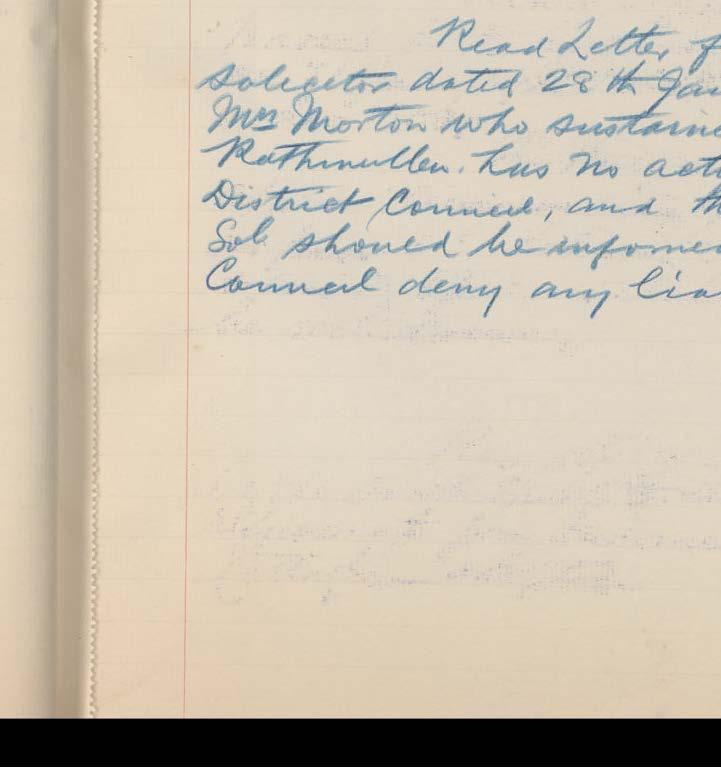 Read Letter f
Solicitor dated 28th Jan
Mrs Morton who sustaine
Rathmullen. has no acti
District Council, and th
Sol. should be informe
Council deny any lia